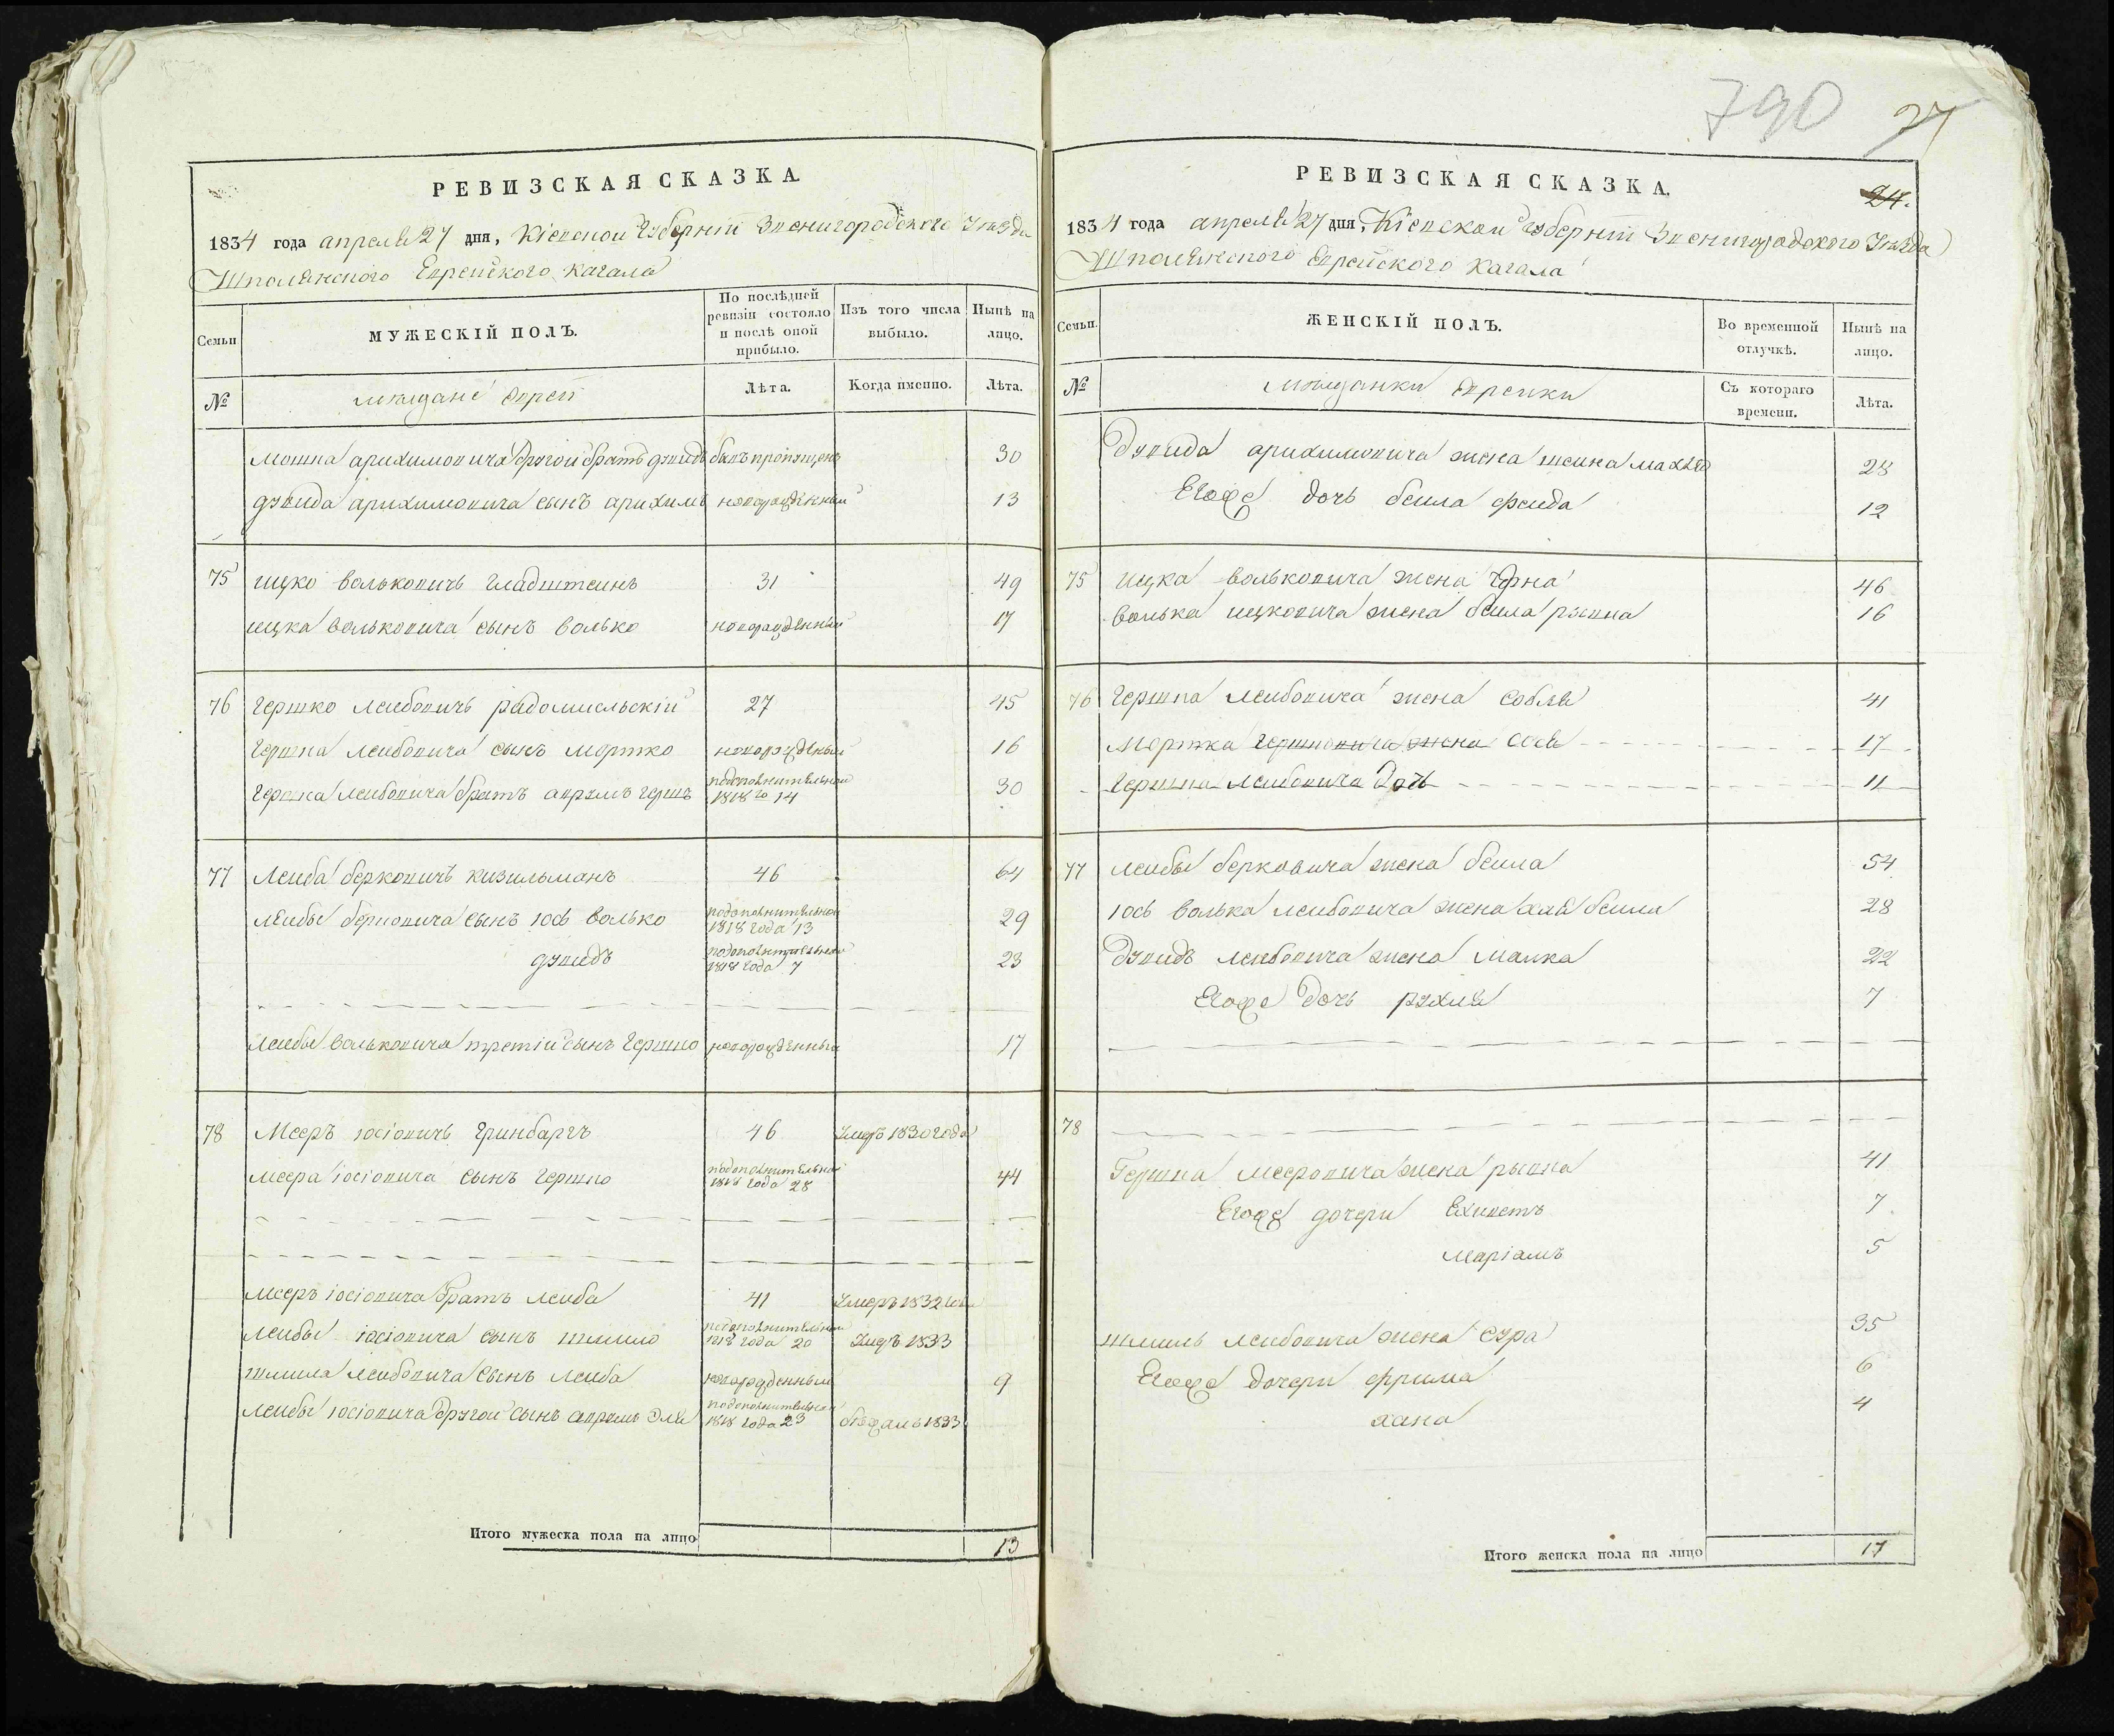 790 27
РЕВИЗСКАЯ СКАЗКА.
1834 года апреля 27 дня, Кіевской Губерніи Звенигородского Уезда
Шполянского Еврейского Кагала
Семьи
МУЖЕСКІЙ ПОЛЪ.
По послѣдней ревизіи состояло и послѣ оной прибыло.
Изъ того числа выбыло.
Нынѣ на лицо.
№
мещане евреи
Лѣта.
Когда именно.
Лѣта.
Мошка другой братъ былъ пропущенъ 30
сынъ новорожденный 13
75 ицко вольковичъ гладштеинъ 31 49
ицка вольковича сынъ волько новорожденный 17
76 Гершко леибовичъ радомисльскій 27 45
Гершка леибовича сынъ мортко новорожденый 16
Гершка леибовича братъ аврумъ гершъ подополнительной 1818 го 14 30
77 Леиба берковичъ кизильманъ 46 64
леибы берковича сынъ іось волько подополнительной 1818 года 13 29
дувидъ подополнительной 1818 года 7 23
Леибы вольковича третіи сынъ Гершко новорожденный 17
78 Мееръ іосіовичъ Гринбаргъ 46 Умеръ 1830 года
меера іосіовича сынъ гершко подополнительной 1818 года 28 44
мееръ іосіовича братъ леиба 41 Умеръ 1832 года
леибы іосіовича сынъ шмилю подополнительной 1818 года 20 Умеръ 1833
шмиля леибовича сынъ леиба новорожденный 9
леибы іосіовича другои сынъ аврумъ Эля подополнительной 1818 года 23 бежалъ 1833
Итого мужеска пола на лицо 13
РЕВИЗСКАЯ СКАЗКА.
24.
1834 года апреля 27 дня, Кіевскои Губерніи Звенигородского Уезда
Шполянского Еврейского Кагала
Семьи.
ЖЕНСКІЙ ПОЛЪ.
Во временной отлучкѣ.
Нынѣ на лицо.
№
мещанки евреики
Съ котораго времени.
Лѣта.
Дувида жена 28
Егоже дочь беила феида 12
75 ицка вольковича жена 46
волька ицковича жена беила рывка 16
76 Гершка леибовича жена собля 41
Мортка гершковича жена сося 17
Гершка леибовича дочь 11
77 леибы берковича жена беила 54
іось волька леибовича жена хая беила 28
Дувидъ леибовича жена малка 22
Егоже дочь рухля 7
78
Гершка мееровича жена рывка 41
Егоже дочери Ехиветъ 7
маріамъ 5
шмиль леибовича жена сура 35
Егоже дочери фрима 6
хана 4
Итого женска пола на лицо 17